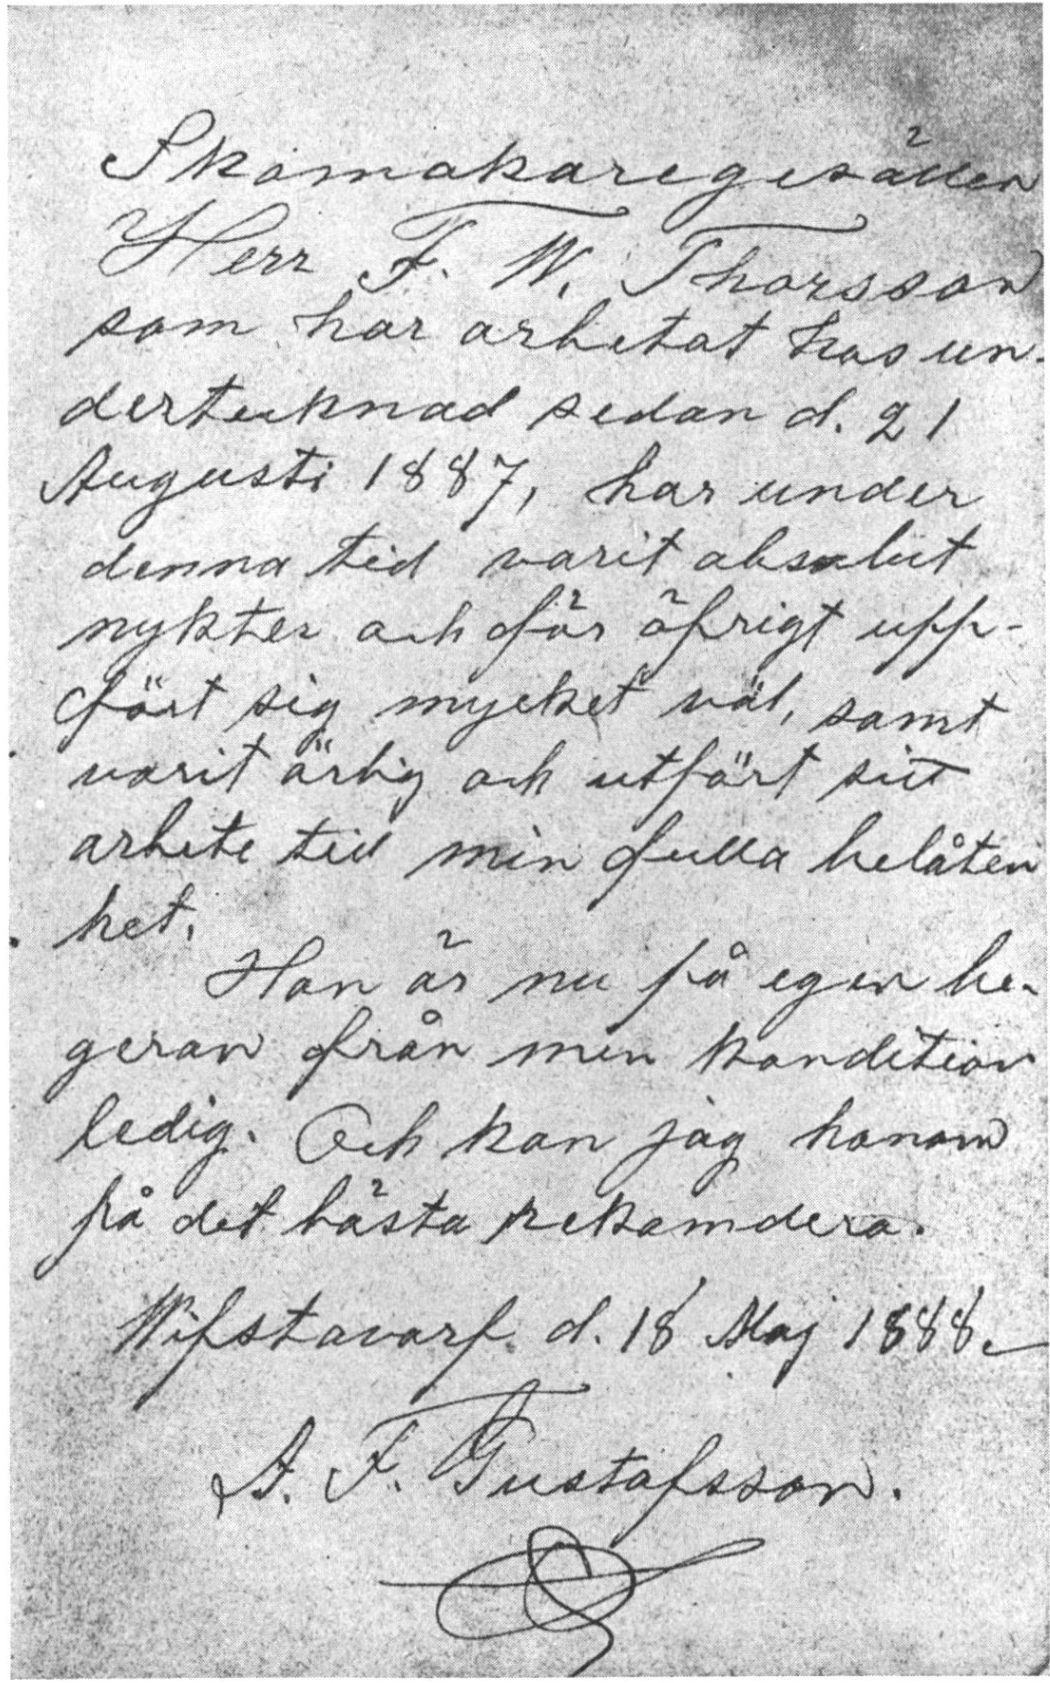 Skomakaregesällen
Herr F. W. Thorsson
som har arbetat hos un-
dertecknad sedan d. 21
Augusti 1887, har under
denna tid varit absolut
nykter och för öfrigt upp-
fört sig mycket väl, samt
varit ärlig och utfört sitt
arbete till min fulla belåten
het.
Han är nu på egen be-
geran från min kondition
ledig. Och kan jag honom
på det bästa rekomdera.
Wifstavarf d. 18 Maj 1888.
A. F. Gustafsson.